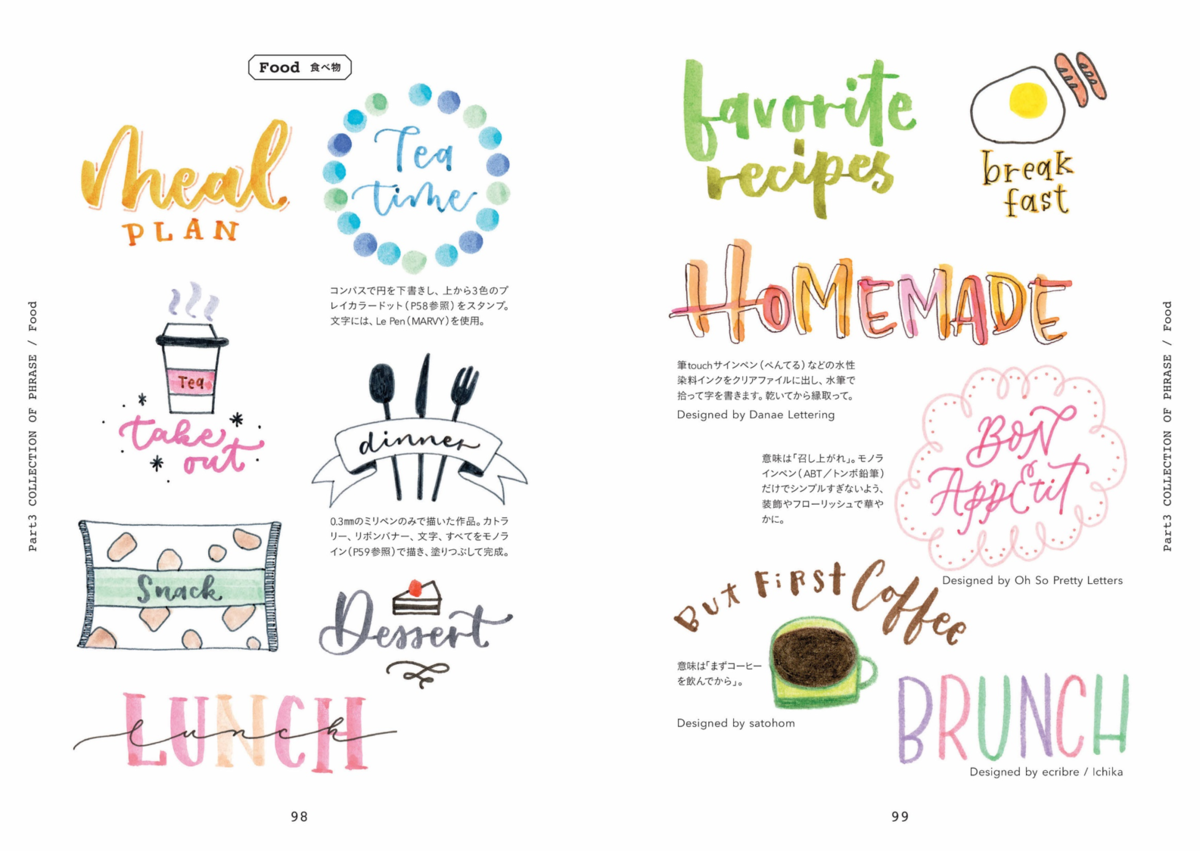 Food 食べ物
Meal
PLAN
Tea
time
コンパスで円を下書きし、上から3色のプ
レイカラードット(P58参照)をスタンプ。
文字には、Le Pen(MARVY)を使用。
Tea
take
out
dinner
0.3㎜のミリペンのみで描いた作品。カトラ
リー、リボンバナー、文字、すべてをモノラ
イン(P59参照)で描き、塗りつぶして完成。
Snack
Dessert
LUNCH
lunch
Part3 COLLECTION OF PHRASE / Food
98
favorite
recipes
break
fast
HOMEMADE
筆touchサインペン(ぺんてる)などの水性
染料インクをクリアファイルに出し、水筆で
拾って字を書きます。乾いてから縁取って。
Designed by Danae Lettering
意味は「召し上がれ」。モノラ
インペン(ABT/トンボ鉛筆)
だけでシンプルすぎないよう、
装飾やフローリッシュで華や
かに。
BON
AppÉtit
Designed by Oh So Pretty Letters
But FiRST Coffee
意味は「まずコーヒー
を飲んでから」。
Designed by satohom
BRUNCH
Designed by ecribre / Ichika
Part3 COLLECTION OF PHRASE / Food
99